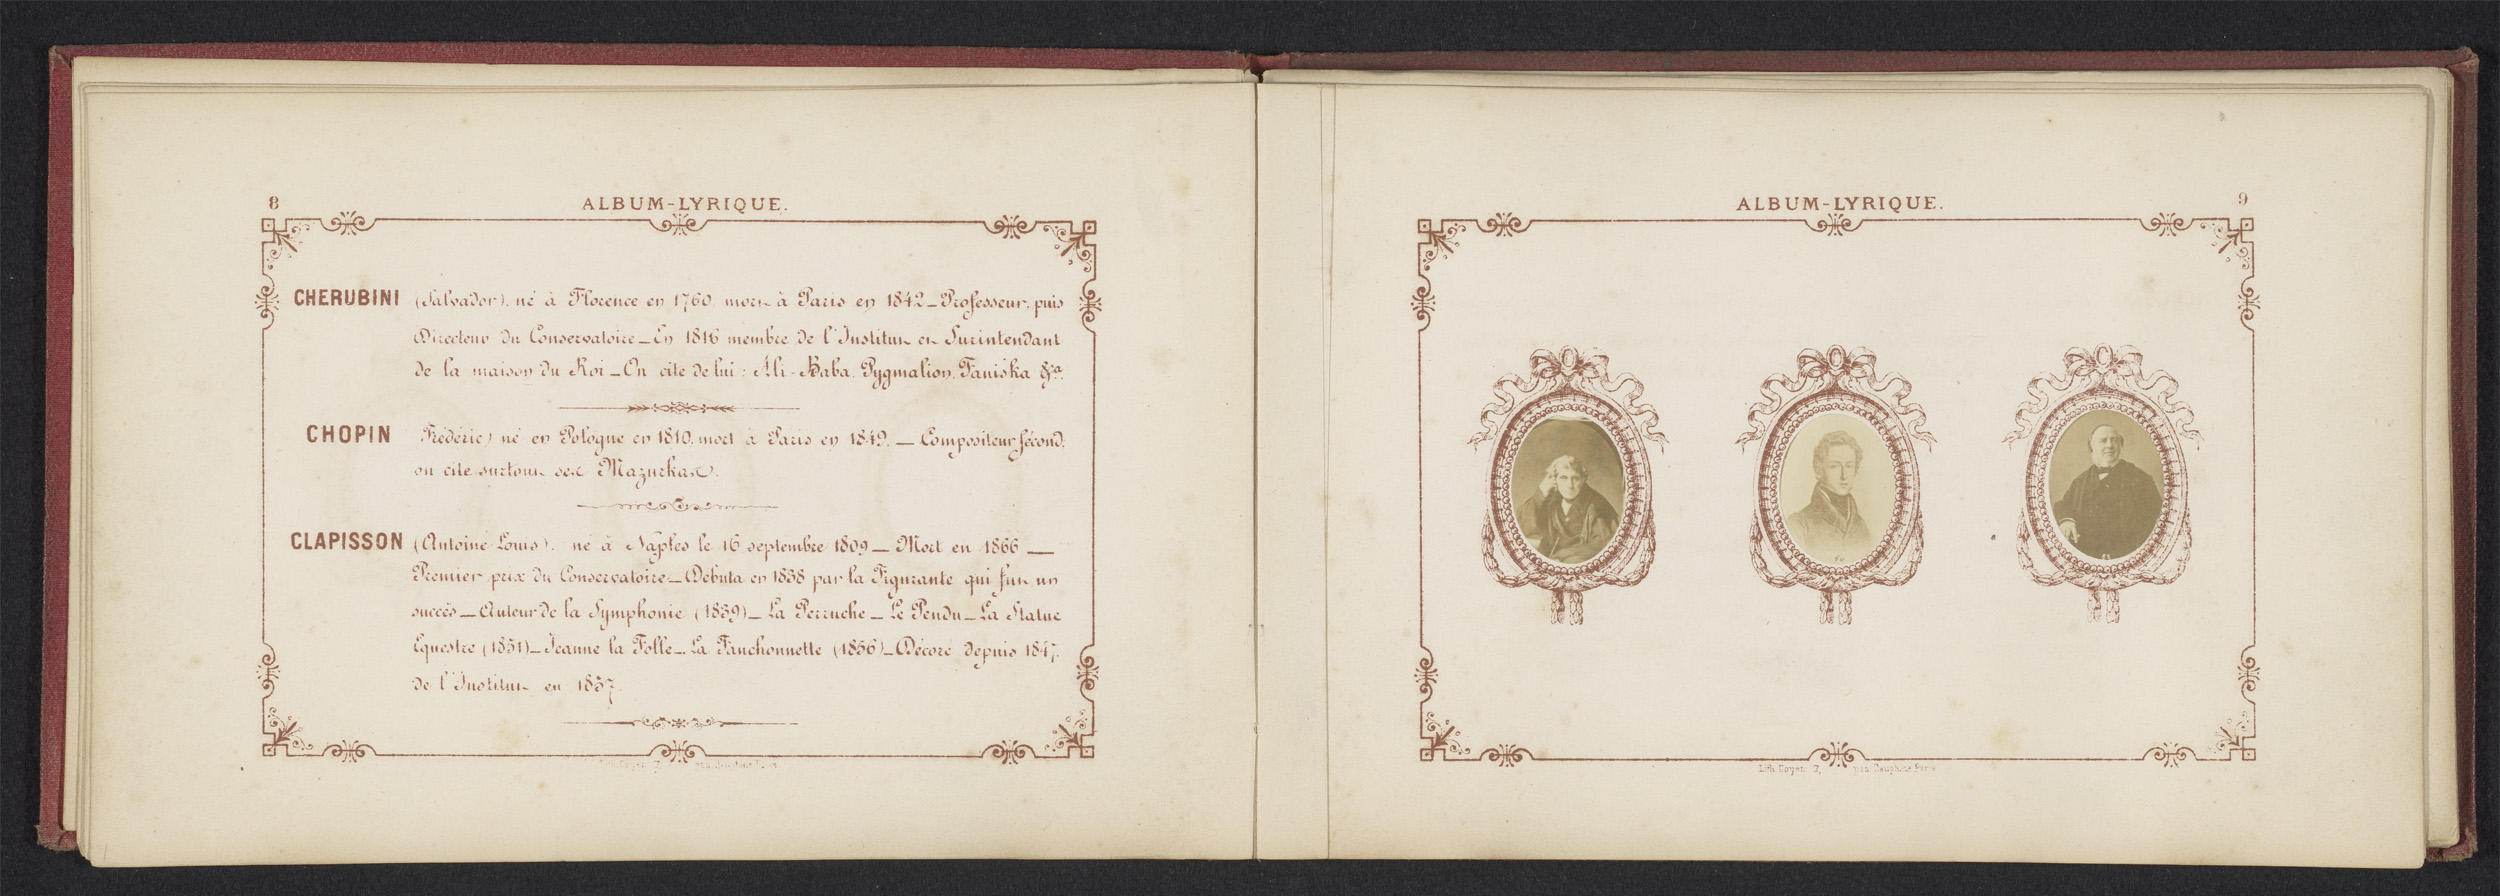 8
ALBUM-LYRIQUE.
CHERUBINI (Salvador). né à Florence en 1760. mort à Paris en 1842_Professeur, puis
Directeur du Conservatoire_En 1816 membre de l'Institut et Surintendant
de la maison du Roi_On cite de lui: Ali-Baba. Pygmalion. Faniska &ca.
CHOPIN Frédéric) né en Pologne en 1810. mort à Paris en 1849. _ Compositeur fécond.
on cite surtout ses Mazurkas.
CLAPISSON (Antoine Louis). né à Naples le 16 septembre 1809 _ Mort en 1866 _
Premier prix du Conservatoire_Débuta en 1838 par la Figurante qui fut un
succès_Auteur de la Symphonie (1839)_La Perruche_Le Pendu_La Statue
Equestre (1851)_Jeanne la Folle_La Fanchonnette (1856)_Décoré depuis 1847.
de l'Institut en 1857.
ALBUM-LYRIQUE.
9
Lith. Goyer 7, pas. Dauphine Paris